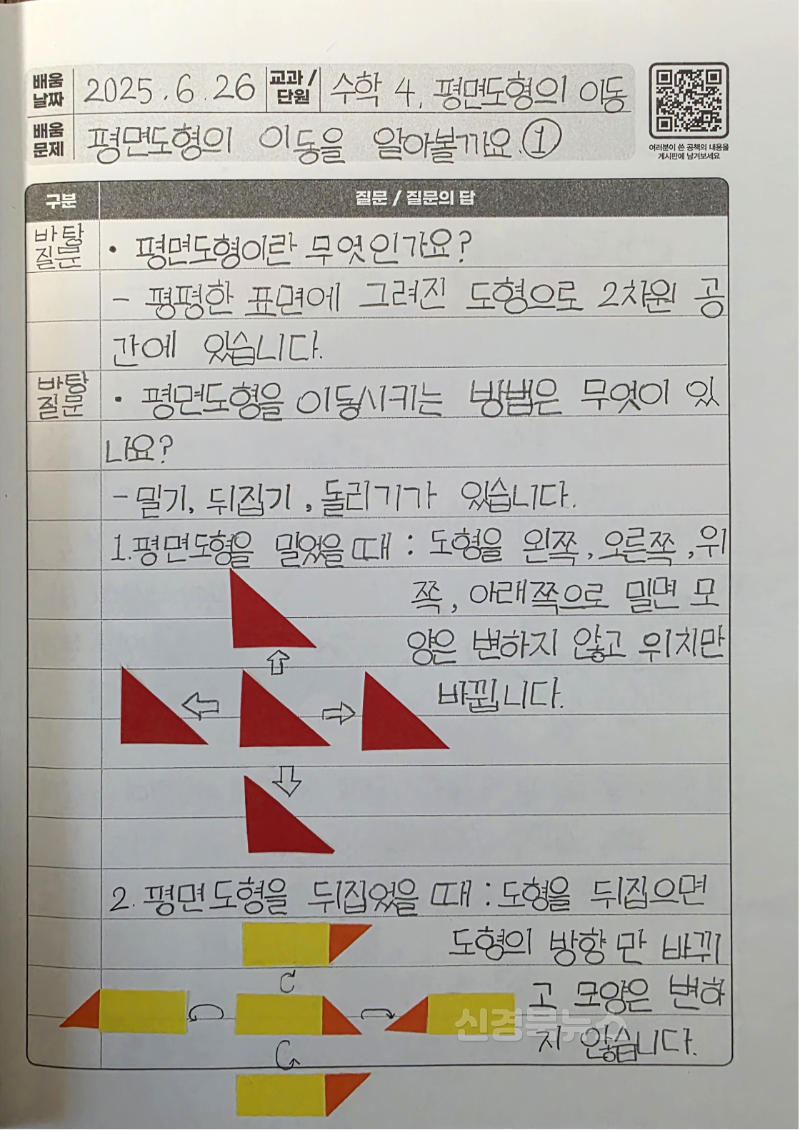 배움 날짜 2025.6.26 교과/단원 수학 4. 평면도형의 이동
배움 문제 평면도형의 이동을 알아볼까요.①
여러분이 쓴 공책의 내용을
게시판에 남겨보세요
구분 질문 / 질문의 답
바탕 질문 • 평면도형이란 무엇인가요?
- 평평한 표면에 그려진 도형으로 2차원 공
간에 있습니다.
바탕 질문 • 평면도형을 이동시키는 방법은 무엇이 있
나요?
- 밀기, 뒤집기, 돌리기가 있습니다.
1.평면도형을 밀었을 때 : 도형을 왼쪽, 오른쪽, 위
쪽, 아래쪽으로 밀면 모
양은 변하지 않고 위치만
바뀝니다.
2. 평면도형을 뒤집었을 때 : 도형을 뒤집으면
도형의 방향만 바뀌
고 모양은 변하
지 않습니다.
신경북뉴스